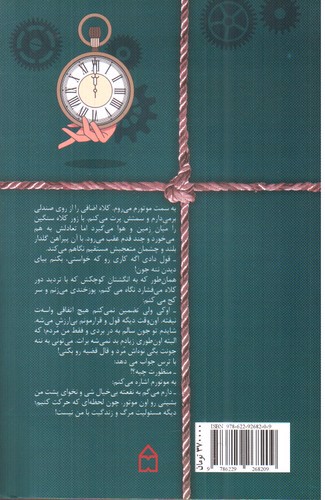 به سمت موتورم می‌روم. کلاه اضافی را از روی صندلی
برمی‌دارم و سمتش پرت می‌کنم. با زور کلاه سنگین
را میان زمین و هوا می‌گیرد اما تعادلش به هم
می‌خورد و چند قدم عقب می‌رود. با آن پیراهن گلدار
بلند و چشمان متعجبش مستقیم نگاهم می‌کند.
- قول دادی اگه کاری رو که خواستی، بکنم بیای
دیدن ننه جون!
همان‌طور که به انگشتان کوچکش که با تردید دور
کلاه می‌فشارد نگاه می کنم، پوزخندی می‌زنم و سر
کج می کنم:
- اوکی ولی تضمین نمی‌کنم هیچ اتفاقی واسه‌ت
نیفته. اون‌وقت دیگه قول و قرارمونم بی‌ارزش می‌شه.
شایدم تو جون سالم به در بردی و فقط من مُردم؛ که
البته اون‌طوری زیادم بد نمی‌شه برات. می‌تونی به ننه
جونت بگی نوه‌اش مُرد و قال قضیه رو بکنی!
با ترس جواب می دهد:
- منظورت چیه؟!
به موتورم اشاره می‌کنم:
- دارم می‌گم به نفعته بی‌خیال شی و نخوای پشت من
بشینی رو اون موتور. چون لحظه‌ای که حرکت کنیم؛
دیگه مسئولیت مرگ و زندگیت با من نیست!
ISBN: 978-622-92682-0-9
9 786229 268209
۳۷۰۰۰۰ تومان